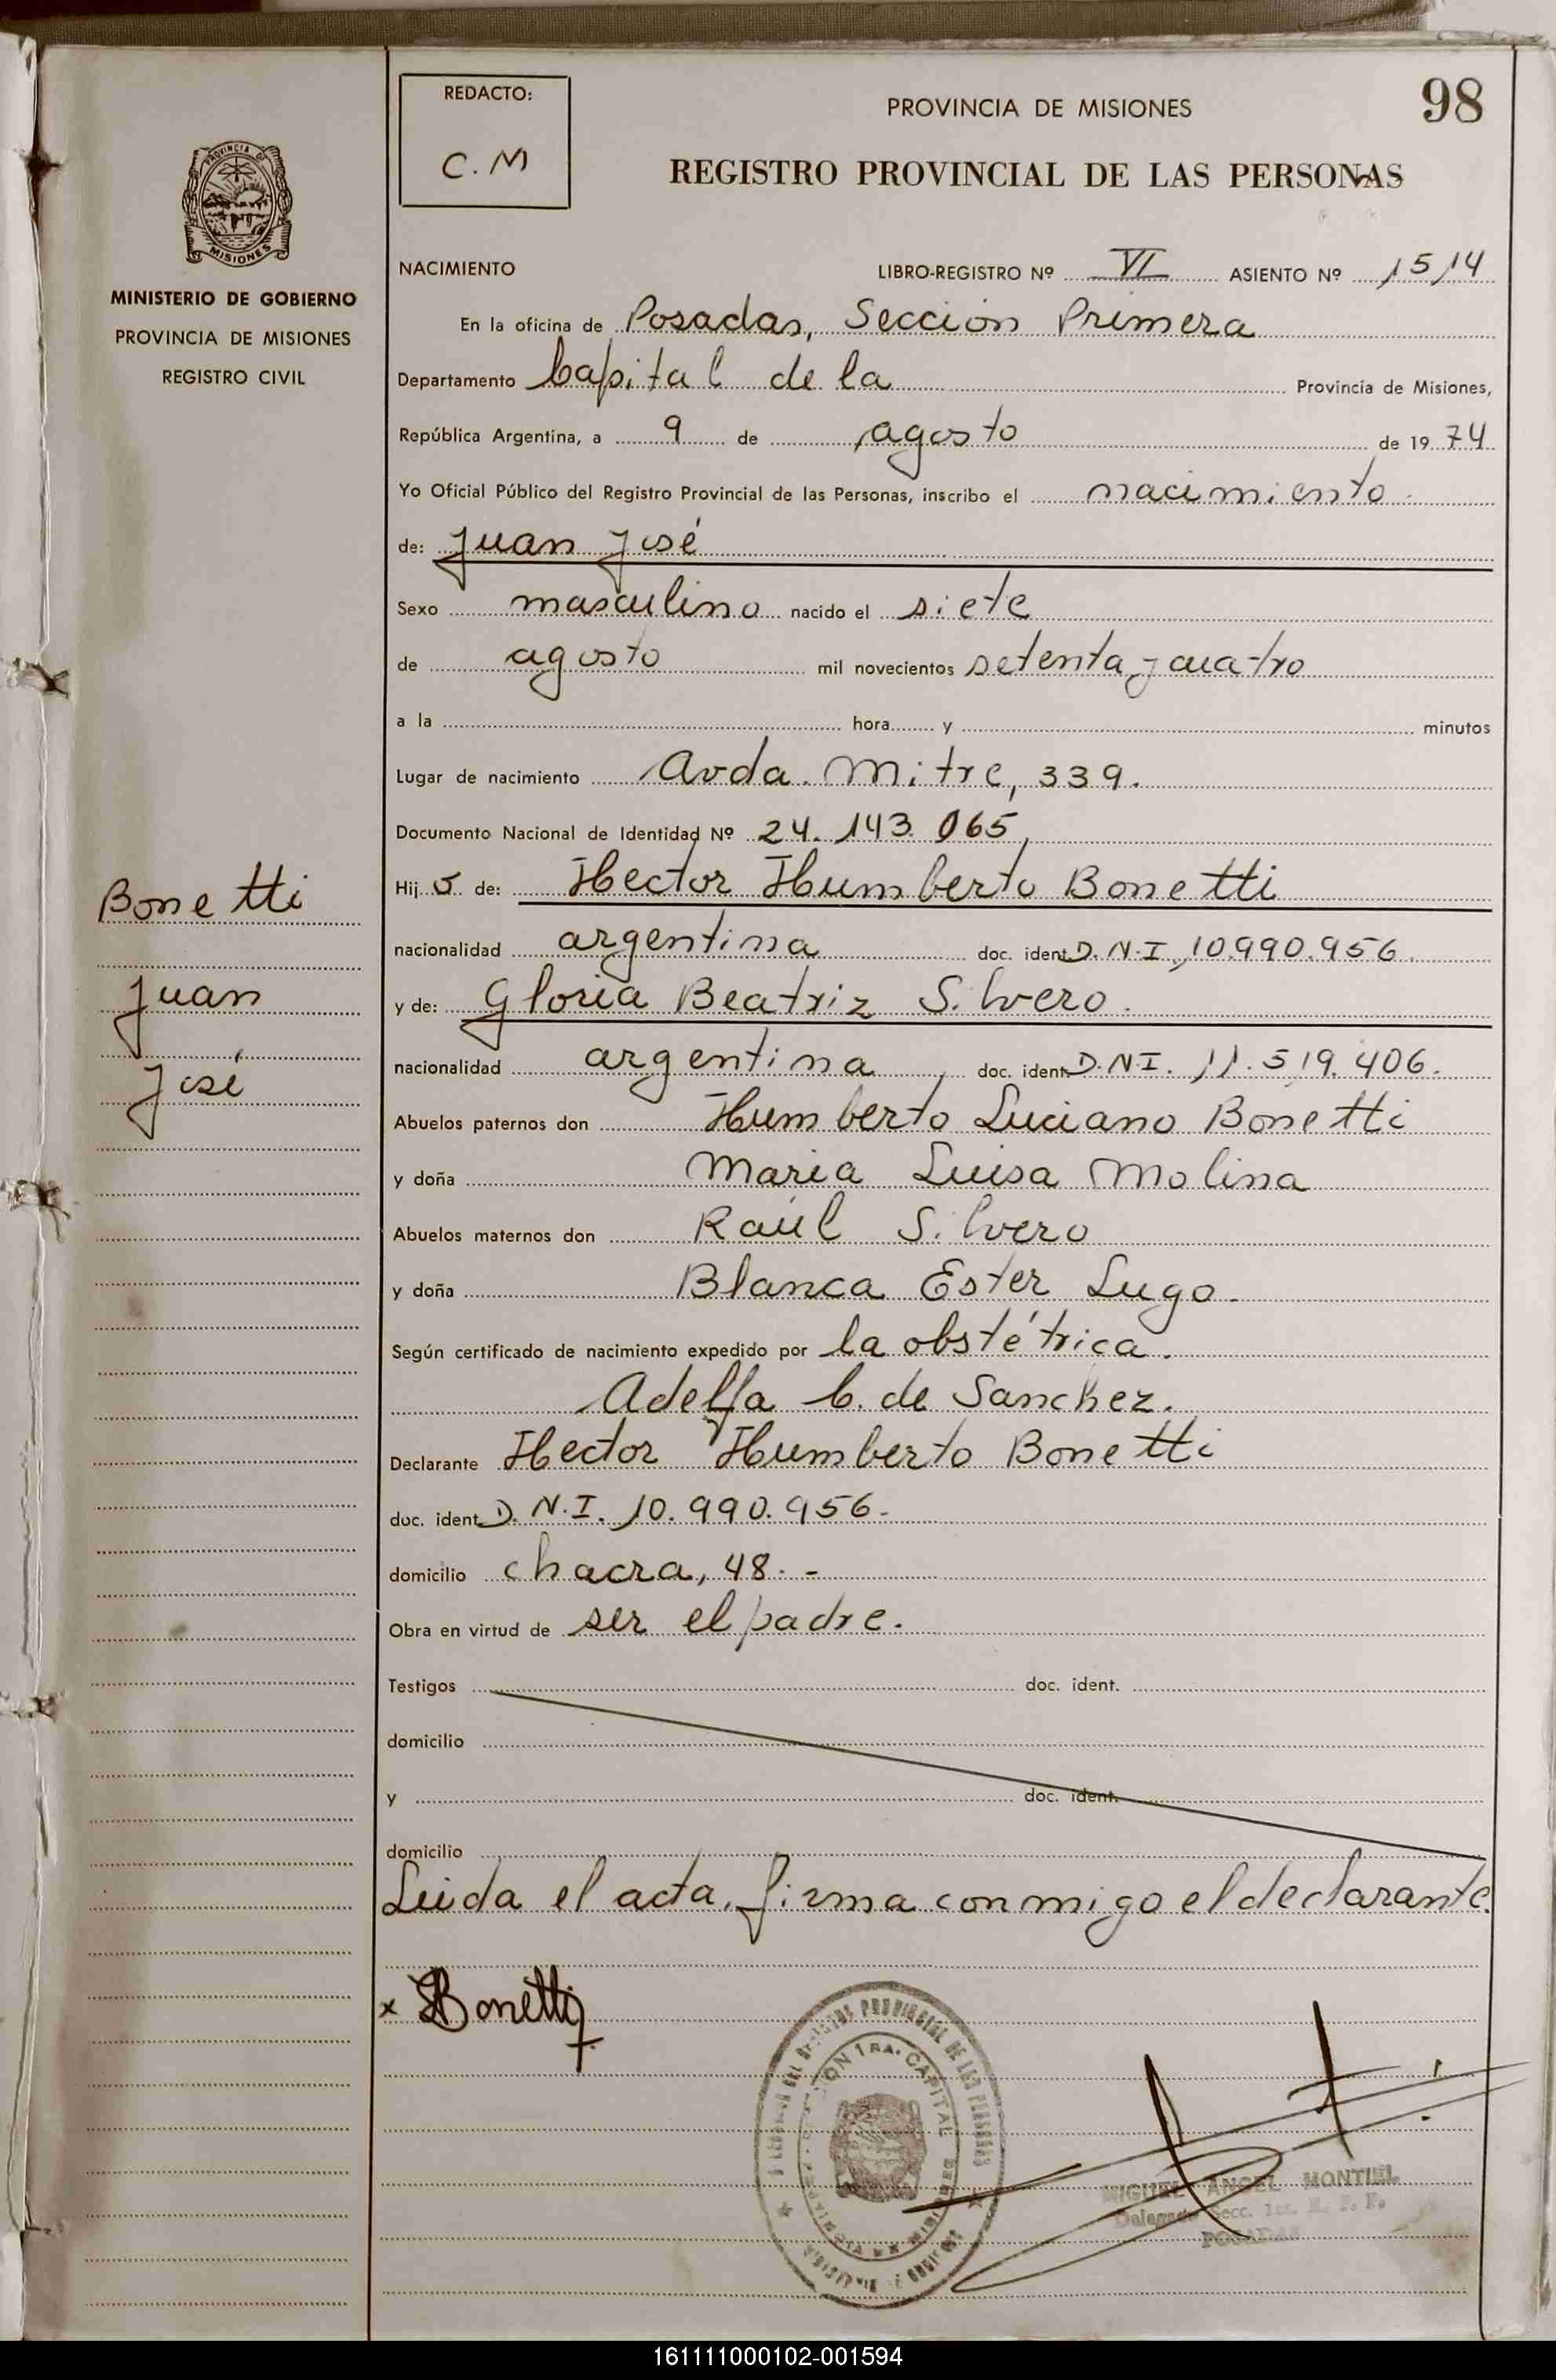 98
REDACTO:
C.M
PROVINCIA DE MISIONES
REGISTRO PROVINCIAL DE LAS PERSONAS
PROVINCIA DE
MISIONES
MINISTERIO DE GOBIERNO
PROVINCIA DE MISIONES
REGISTRO CIVIL
NACIMIENTO LIBRO-REGISTRO Nº VI ASIENTO Nº 1514
En la oficina de Posadas, Sección Primera
Departamento Capital de la Provincia de Misiones,
República Argentina, a 9 de agosto de 1974
Yo Oficial Público del Registro Provincial de las Personas, inscribo el nacimiento
de: Juan José
Sexo masculino nacido el siete
de agosto mil novecientos setenta y cuatro
a la hora y minutos
Lugar de nacimiento Avda. Mitre, 339.
Documento Nacional de Identidad Nº 24.143.065,
Bonetti
Juan
José
Hijo de: Hector Humberto Bonetti
nacionalidad argentina doc. ident. D.N.I., 10.990.956.
y de: Gloria Beatriz Silvero.
nacionalidad argentina, doc. ident. D.N.I. 11.519.406.
Abuelos paternos don Humberto Luciano Bonetti
y doña Maria Luisa Molina
Abuelos maternos don Raúl Silvero
y doña Blanca Ester Lugo.
Según certificado de nacimiento expedido por la obstétrica.
Adelfa C. de Sanchez.
Declarante Hector Humberto Bonetti
doc. ident. D.N.I. 10.990.956.
domicilio chacra, 48. -
Obra en virtud de ser el padre.
Testigos doc. ident.
domicilio
y doc. ident.
domicilio
Leida el acta, firma conmigo el declarante.
x Bonetti
PROVINCIAL DE LAS PERSONAS
1RA. CAPITAL
MIGUEL ANGEL MONTIEL
Delegado Secc. 1ra. R. P. P.
POSADAS
161111000102-001594